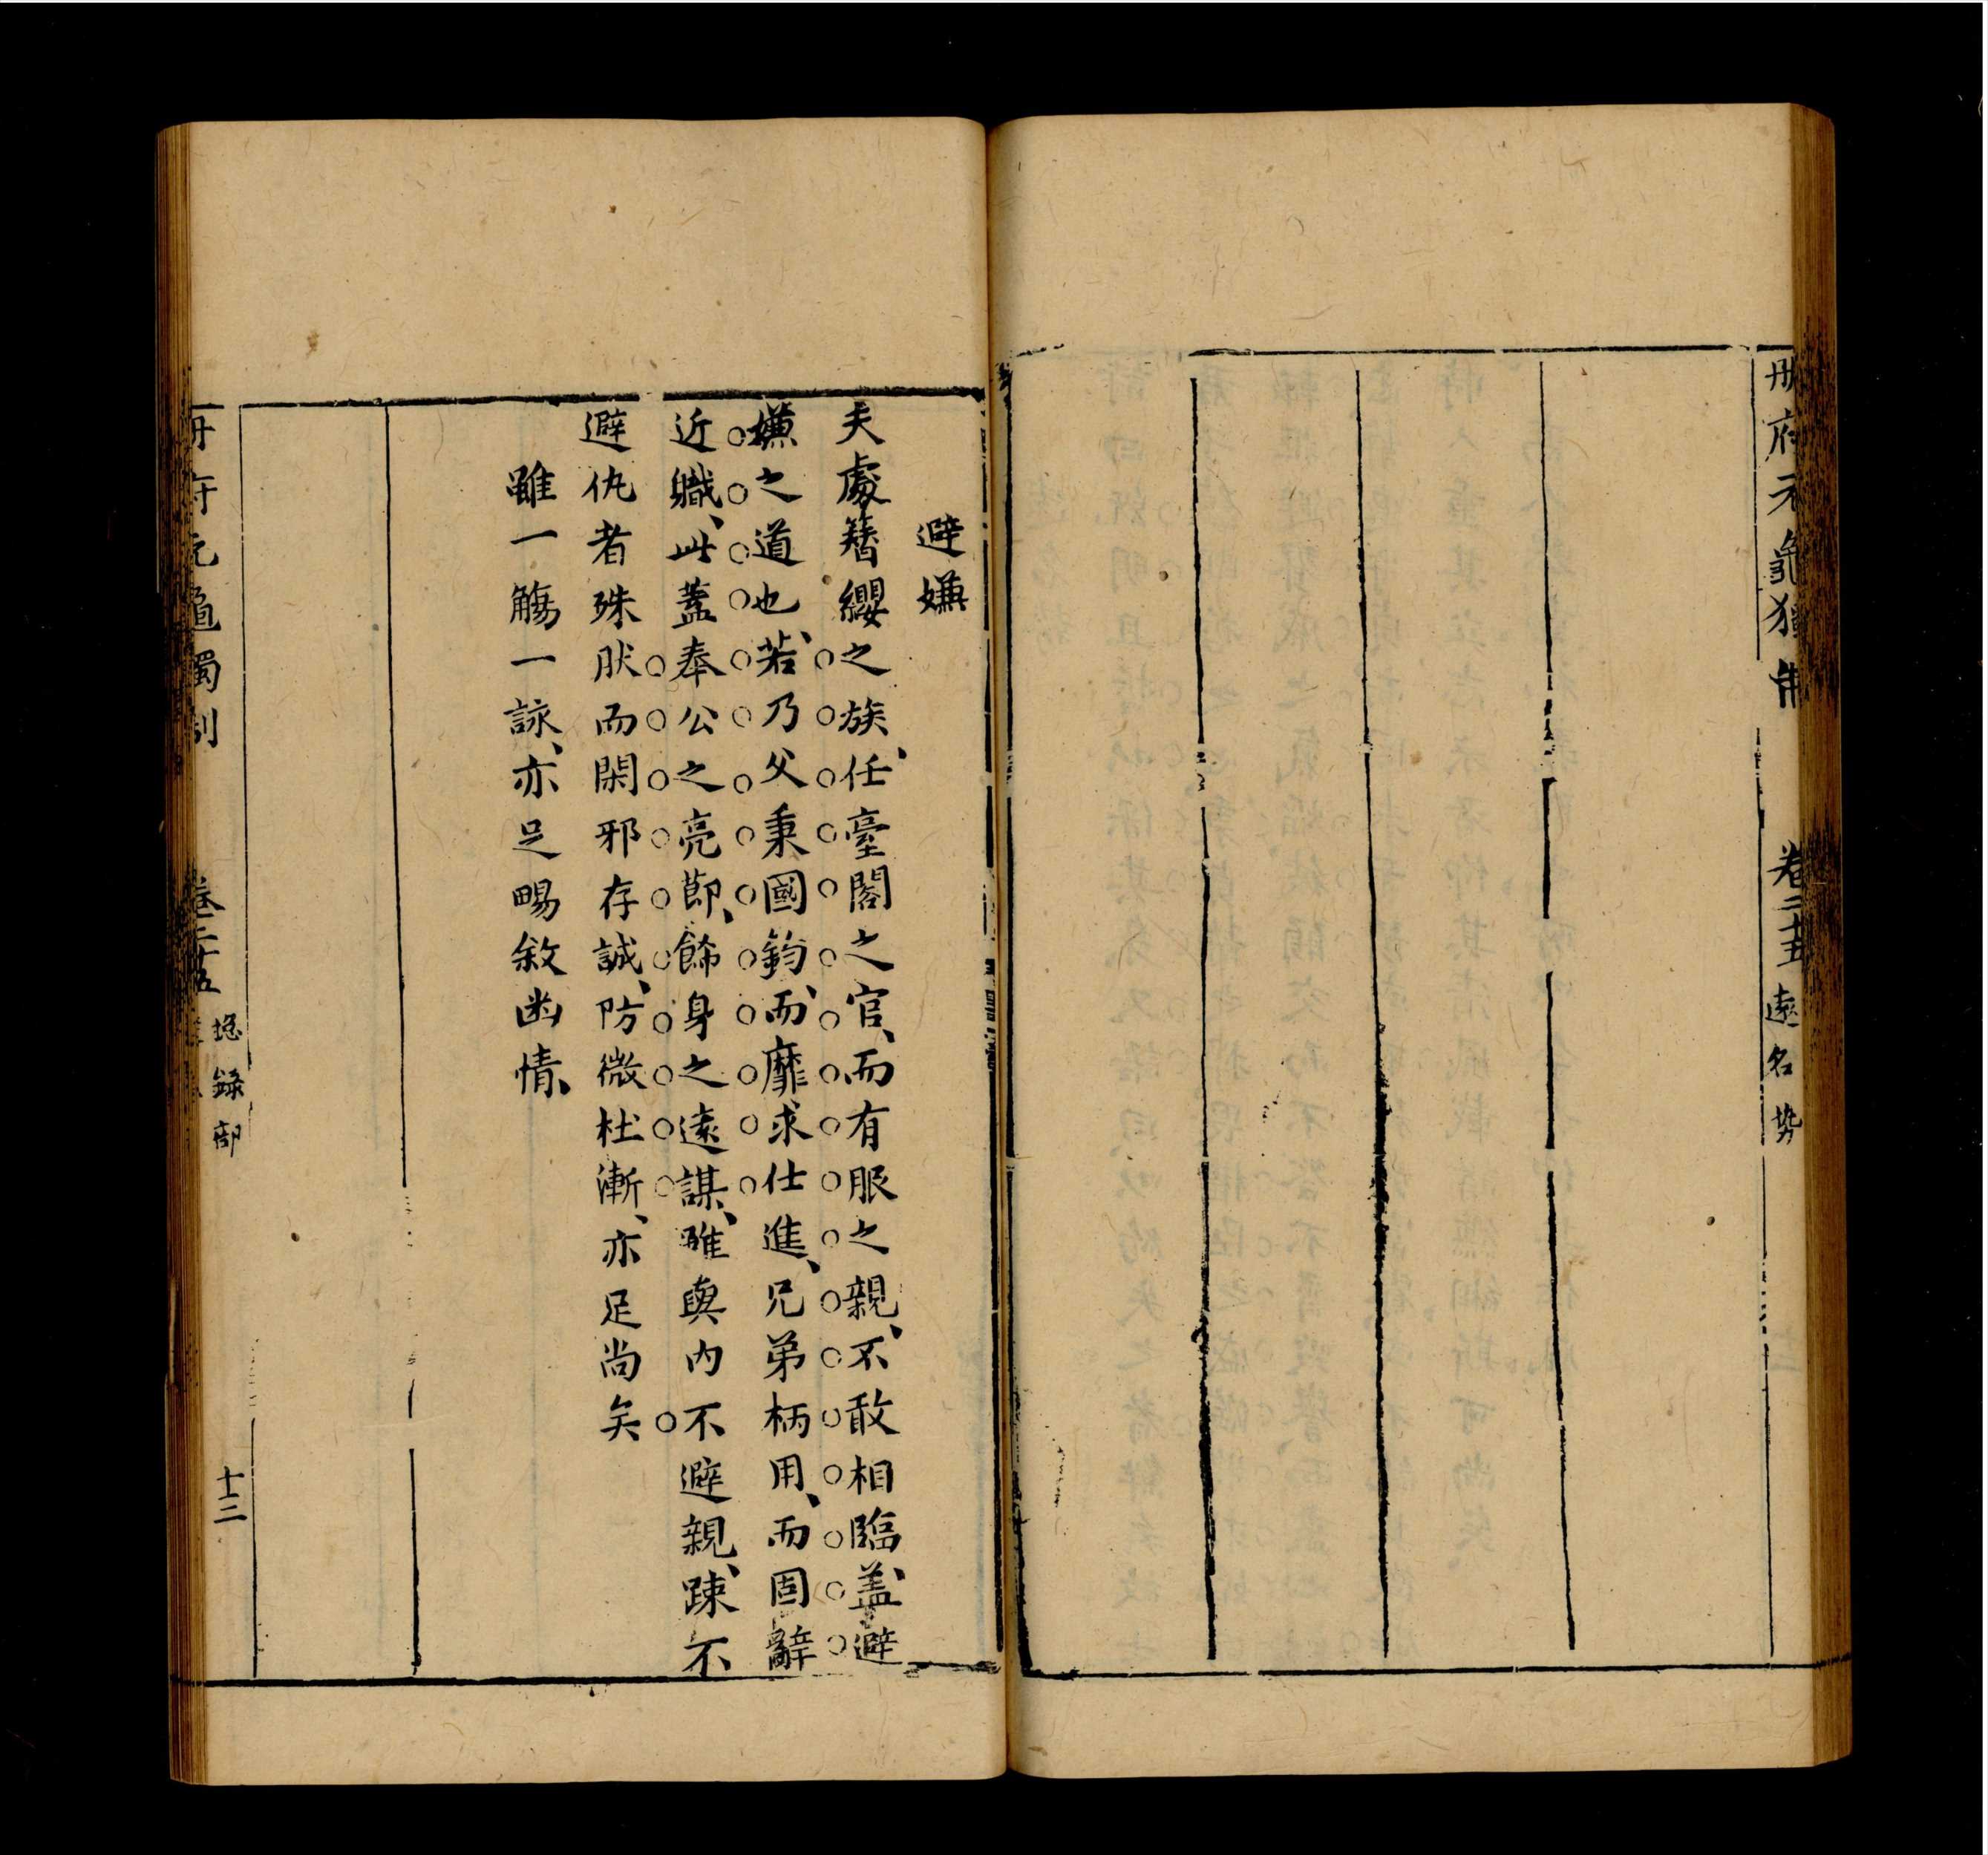 冊府元龜獨制
卷二十五
遠名勢
避嫌
夫處簪纓之族、任臺閣之官、而有服之親、不敢相臨、蓋避
嫌之道也、若乃父秉國鈞、而靡求仕進、兄弟柄用、而固辭
近職、此蓋奉公之亮節、飾身之遠謀、雖與內不避親、踈不
避仇者殊肰而閑邪存誠、防微杜漸、亦足尚矣
雖一觴一詠、亦足暢敘幽情、
冊府元龜獨制
卷二十五
総錄部
十二